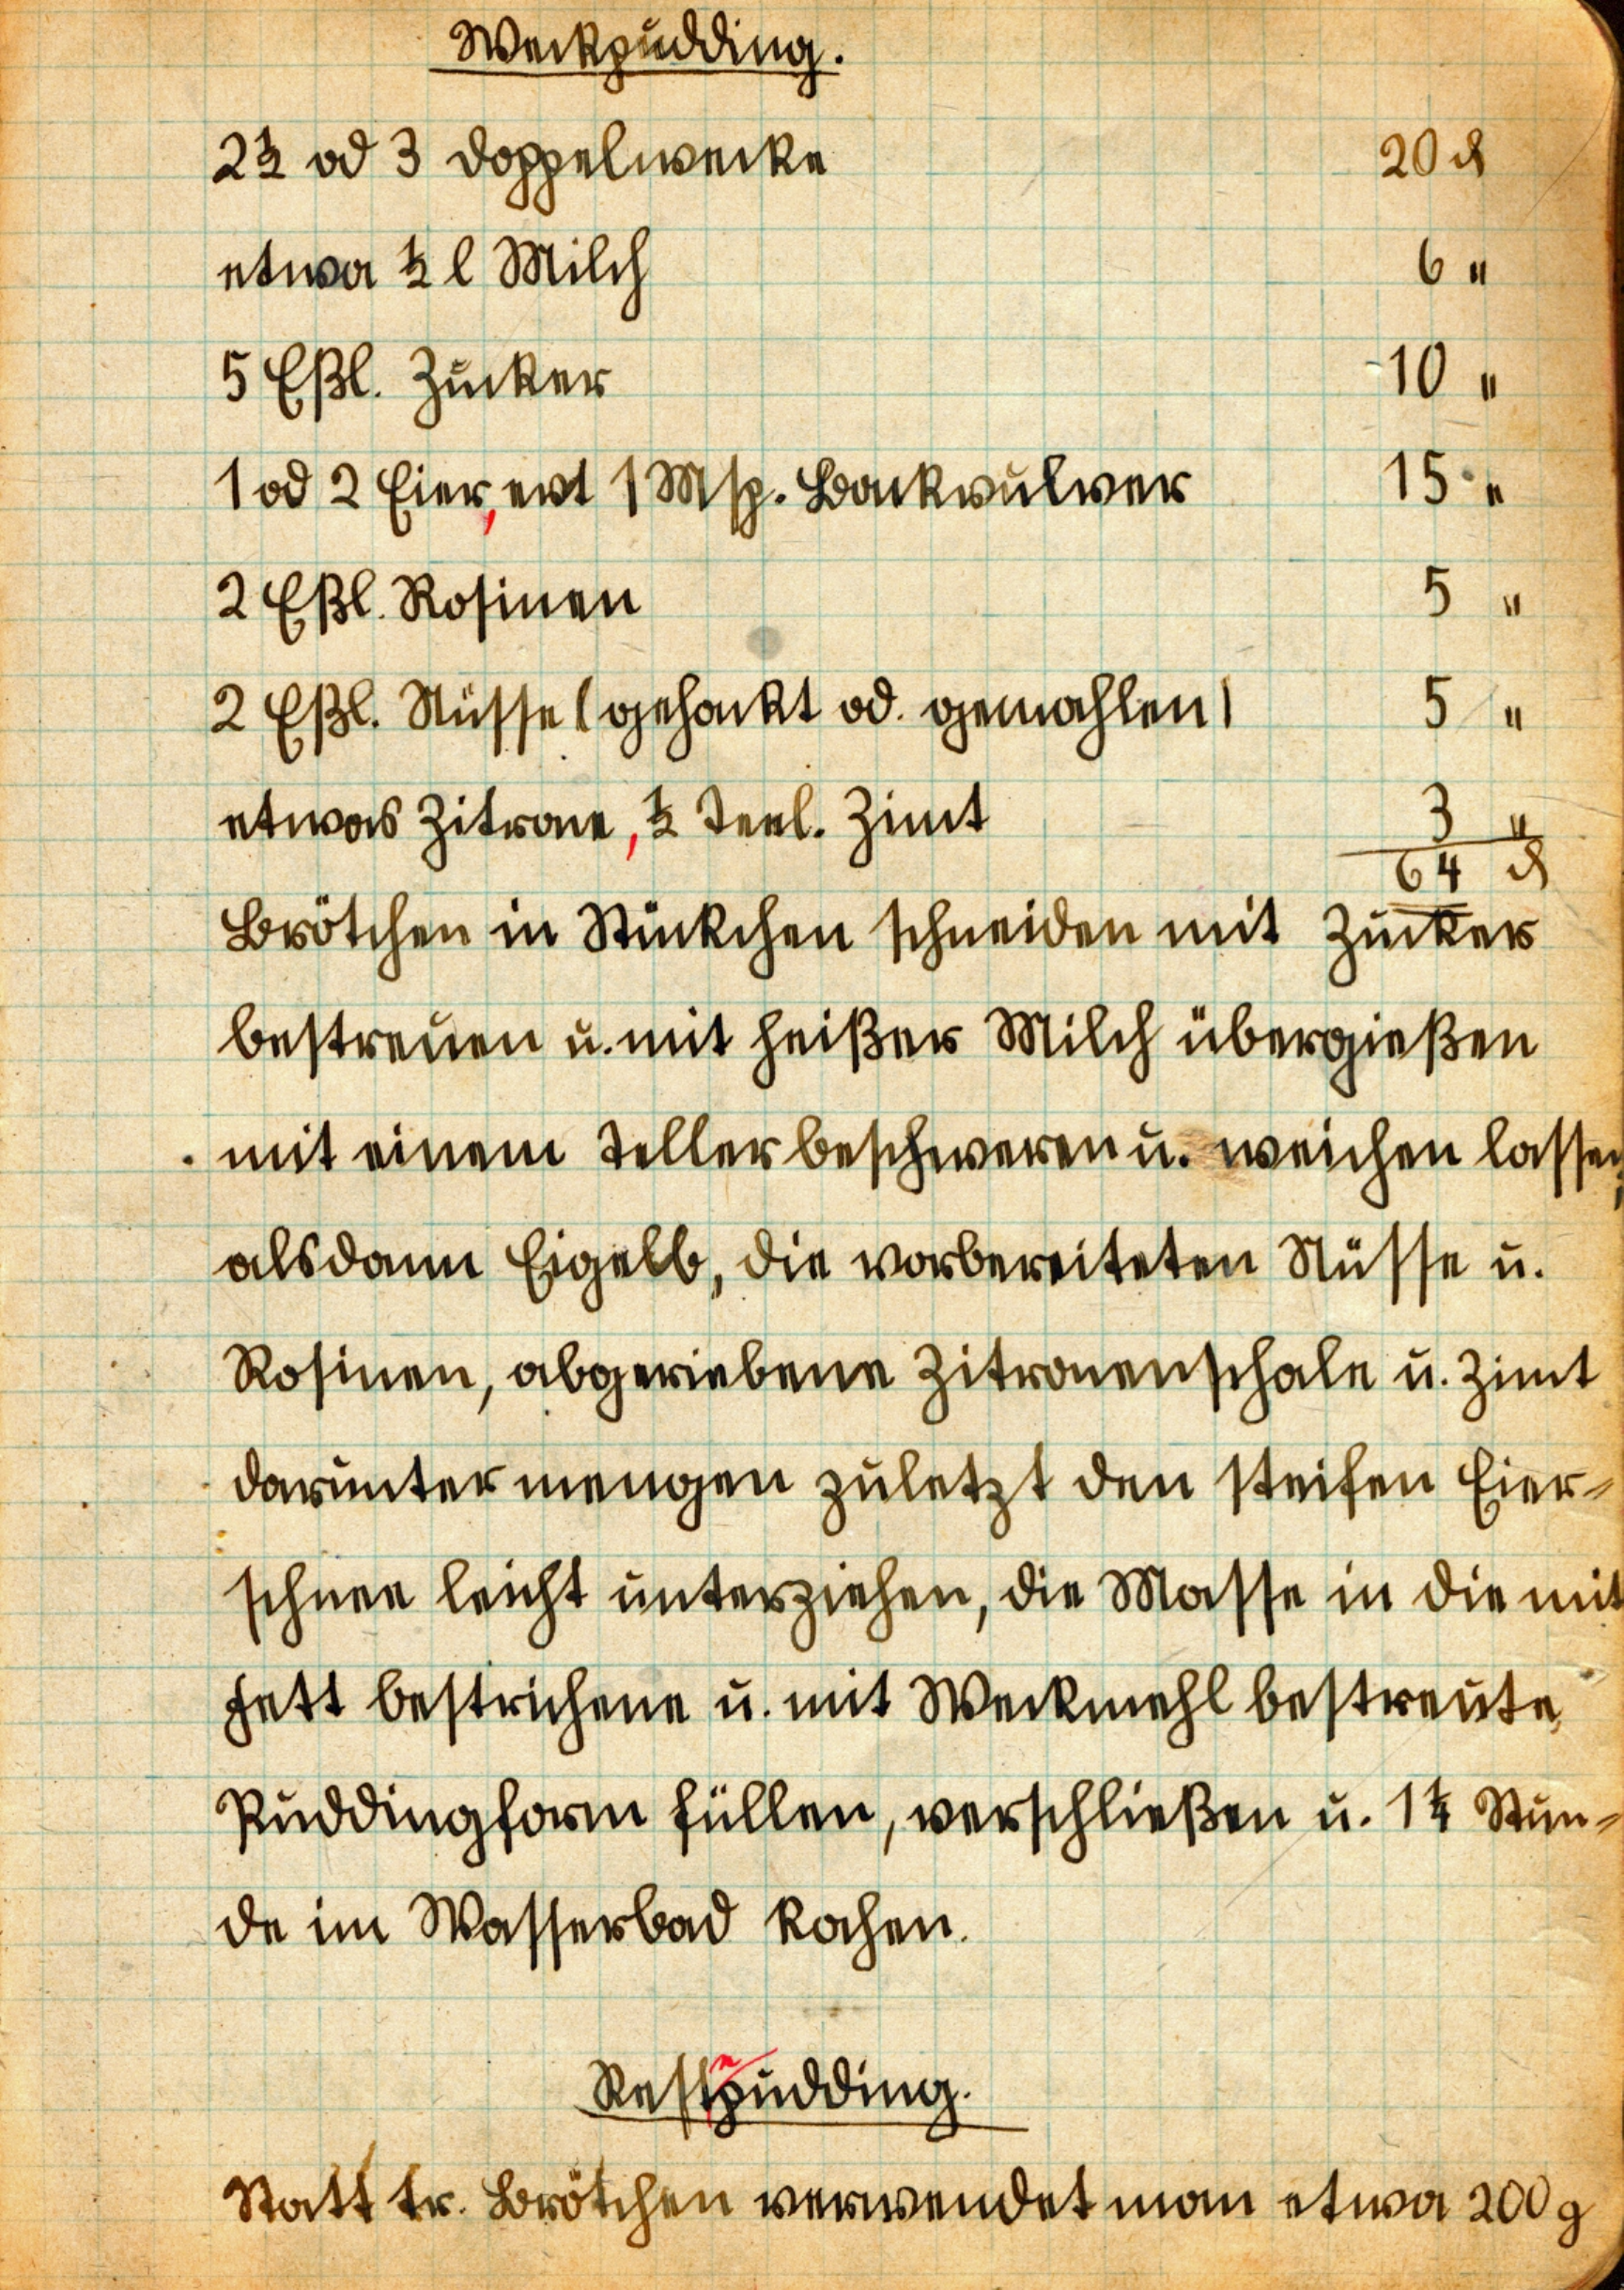 Weckpudding.
2½ od 3 Doppelwecke 20 ₰
etwa ½ l Milch 6 "
5 Eßl. Zucker 10 "
1 od 2 Eier, evt 1 Msp. Backpulver 15 "
2 Eßl. Rosinen 5 "
2 Eßl. Nüsse (gehackt od. gemahlen) 5 "
etwas Zitrone, ½ Teel. Zimt 3 "
64 ₰
Brötchen in Stückchen schneiden mit Zucker
bestreuen u. mit heißer Milch übergießen
mit einem Teller beschweren u. weichen lassen,
alsdann Eigelb, die vorbereiteten Nüsse u.
Rosinen, abgeriebene Zitronenschale u. Zimt
daruntermengen zuletzt den steifen Eier=
schnee leicht unterziehen, die Masse in die mit
Fett bestrichene u. mit Weckmehl bestreute
Puddingform füllen, verschließen u. 1¼ Stun=
de im Wasserbad kochen.
Restepudding.
Statt tr. Brötchen verwendet man etwa 200 g